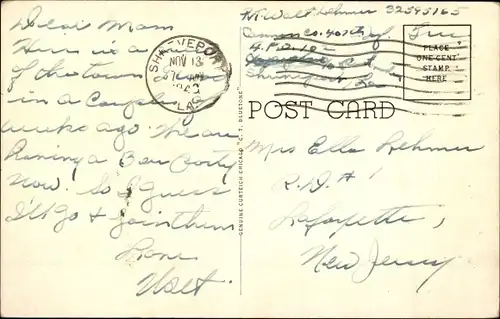 Dear Mom
Here is a
of the town I was
in a couple of
weeks ago. We are
Having a Beer Party
Now. So I guess
I'll go & join them
Love
Walt
SHREVEPORT
NOV 13
LA.
Pvt Walt Lehmer 32595165
Cannon Co. 407 Inf.
A.P.O. 10
Shreveport, La
Free
PLACE
ONE CENT
STAMP
HERE
POST CARD
GENUINE CURTEICH-CHICAGO "C. T. DOUBTONE"
Mrs Ella Lehmer
R.D. #1
Lafayette,
New Jersey